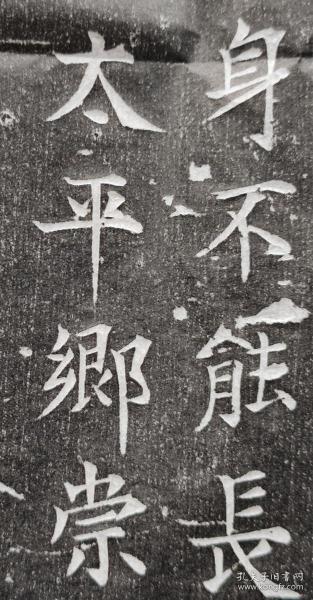 身不能長
太平鄉崇
孔夫子旧书网